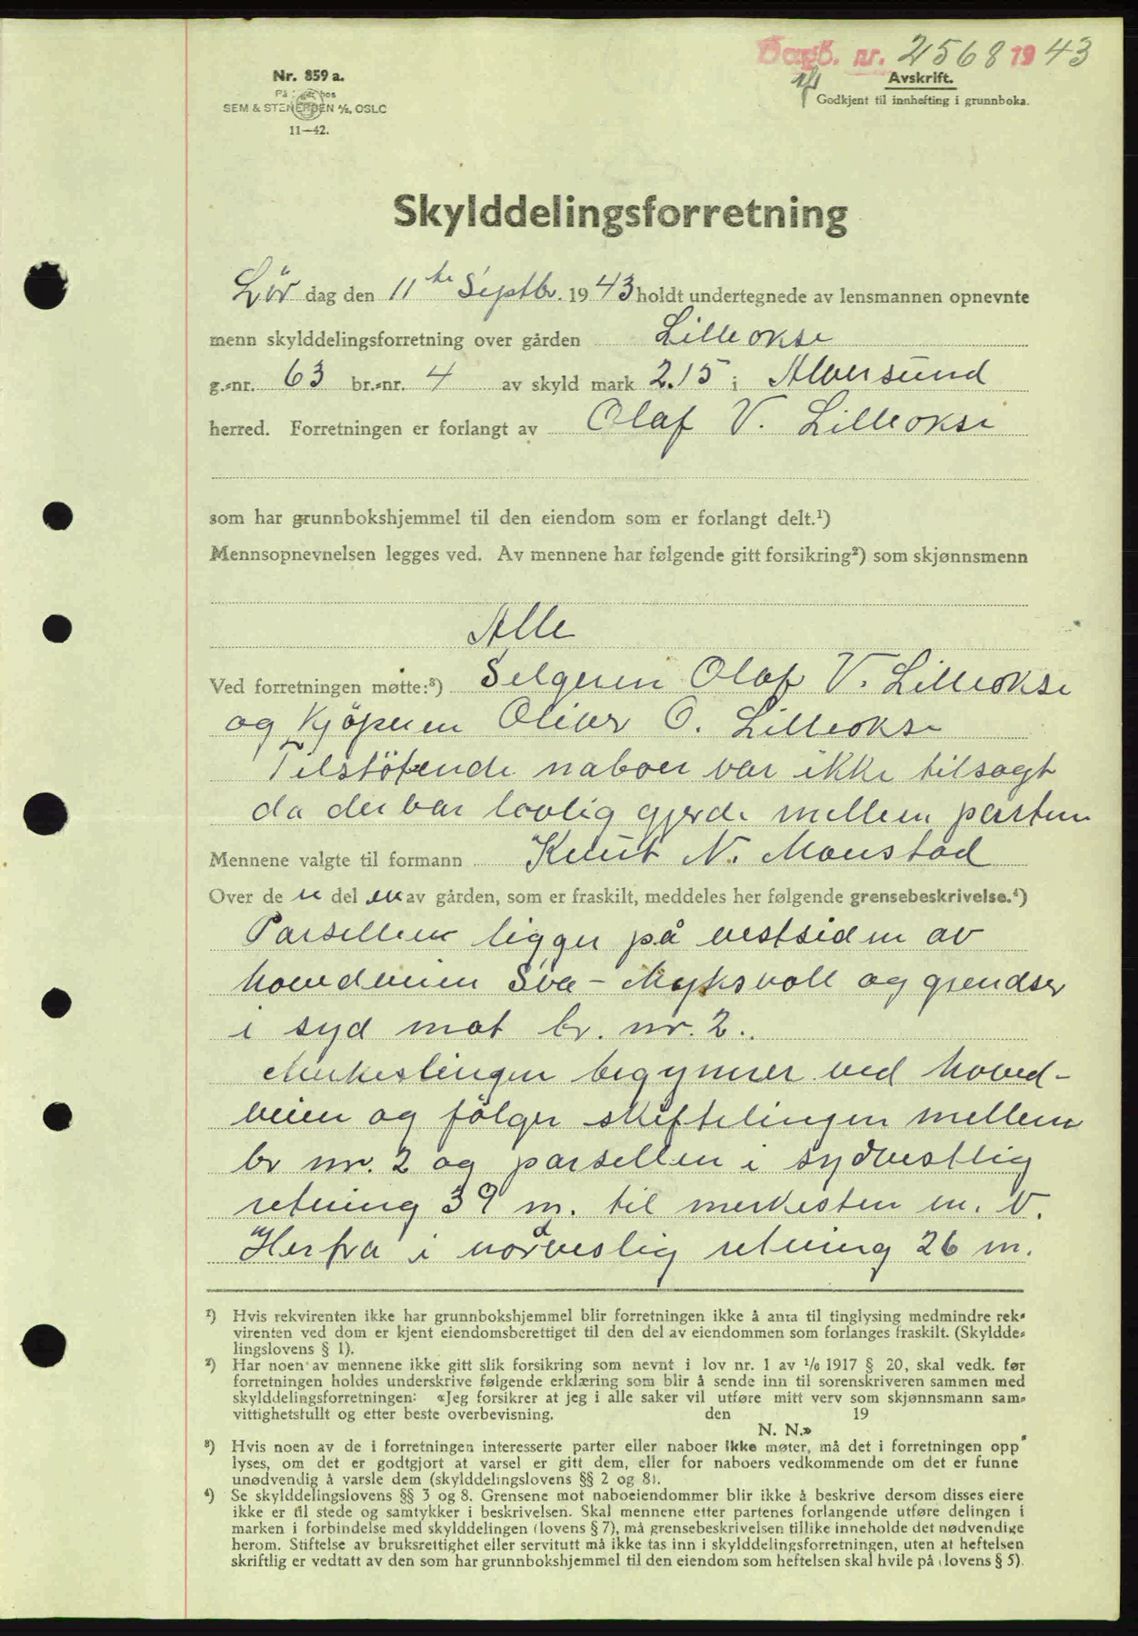 Dagb. nr. 2568 1943
Nr. 859 a.
SEM & STENERSEN A/S, OSLO
11—42.
Avskrift.
Godkjent til innhefting i grunnboka.
Skylddelingsforretning
Lör dag den 11 te Septbr. 1943 holdt undertegnede av lensmannen opnevnte
menn skylddelingsforretning over gården Lilleokse
g.-nr. 63 br.-nr. 4 av skyld mark 2.15 i Alversund
herred. Forretningen er forlangt av Olaf V. Lilleokse
som har grunnbokshjemmel til den eiendom som er forlangt delt.¹)
Mennsopnevnelsen legges ved. Av mennene har følgende gitt forsikring²) som skjønnsmenn
Alle
Ved forretningen møtte:³) Selgeren Olaf V. Lilleokse
og Kjöperen Oliver O. Lilleokse
Tilstötende naboer var ikke tilsagt
da der var lovlig gjerde mellem partene
Mennene valgte til formann Knut N. Monstad
Over de n del en av gården, som er fraskilt, meddeles her følgende grensebeskrivelse.⁴)
Parsellen ligger på vestsiden av
hovedveien Sva - Myksvoll og grendser
i syd mot br. nr. 2.
Merkeslingen begynner ved hoved-
veien og fölger skiftelingen mellem
br nr. 2 og parsellen i sydvestlig
retning 39 m. til merkesten m. V.
Herfra i nordveslig retning 26 m.
¹) Hvis rekvirenten ikke har grunnbokshjemmel blir forretningen ikke å anta til tinglysing medmindre rek-
virenten ved dom er kjent eiendomsberettiget til den del av eiendommen som forlanges fraskilt. (Skyldde-
lingslovens § 1).
²) Har noen av mennene ikke gitt slik forsikring som nevnt i lov nr. 1 av 1/6 1917 § 20, skal vedk. før
forretningen holdes underskrive følgende erklæring som blir å sende inn til sorenskriveren sammen med
skylddelingsforretningen: «Jeg forsikrer at jeg i alle saker vil utføre mitt verv som skjønnsmann sam-
vittighetsfullt og etter beste overbevisning. den 19
N. N.»
³) Hvis noen av de i forretningen interesserte parter eller naboer ikke møter, må det i forretningen opp
lyses, om det er godtgjort at varsel er gitt dem, eller for naboers vedkommende om det er funne
unødvendig å varsle dem (skylddelingslovens §§ 2 og 8).
⁴) Se skylddelingslovens §§ 3 og 8. Grensene mot naboeiendommer blir ikke å beskrive dersom disses eiere
ikke er til stede og samtykker i beskrivelsen. Skal mennene etter partenes forlangende utføre delingen i
marken i forbindelse med skylddelingen (lovens § 7), må grensebeskrivelsen tillike inneholde det nødvendige
herom. Stiftelse av bruksrettighet eller servitutt må ikke tas inn i skylddelingsforretningen, uten at heftelsen
skriftlig er vedtatt av den som har grunnbokshjemmel til den eiendom som heftelsen skal hvile på (lovens § 5).